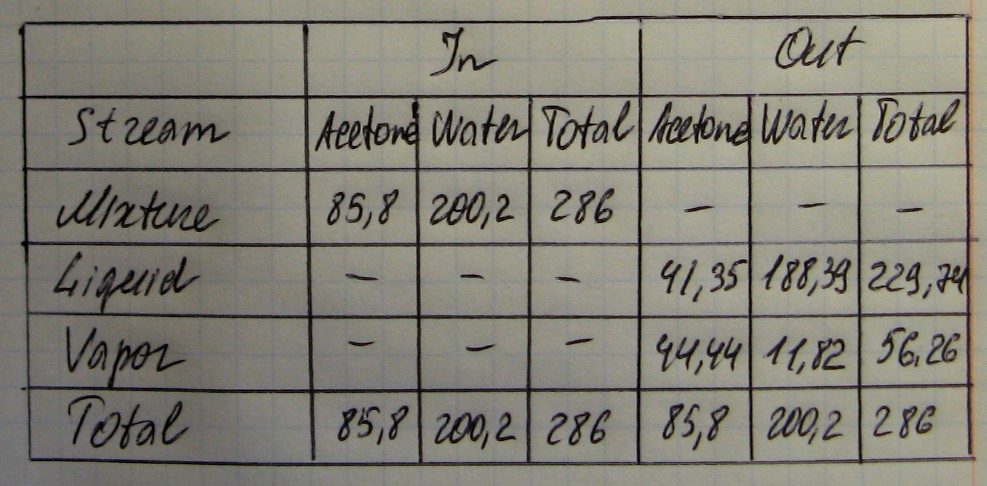 In Out
Stream Acetone Water Total Acetone Water Total
Mixture 85,8 200,2 286 – – –
Liquid – – – 41,35 188,39 229,74
Vapor – – – 44,44 11,82 56,26
Total 85,8 200,2 286 85,8 200,2 286